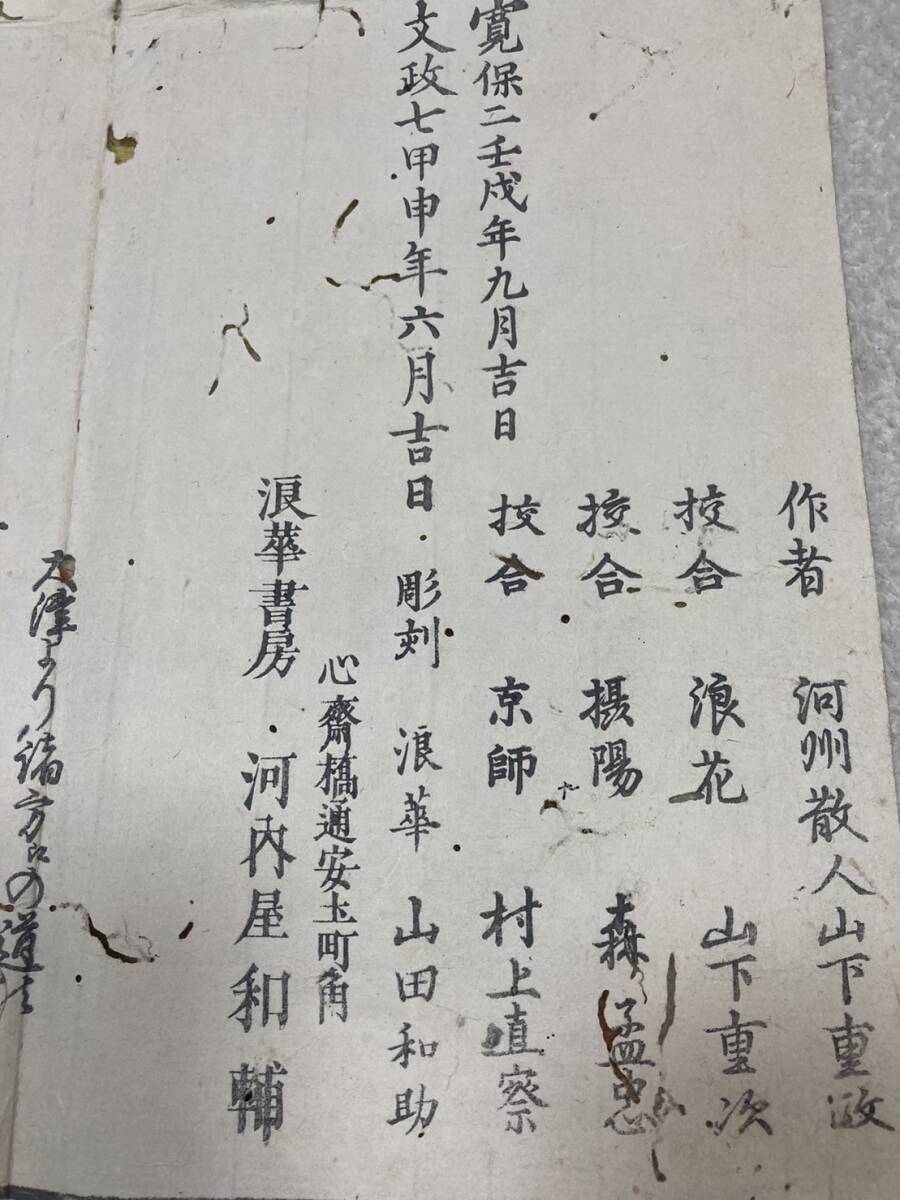 作者 河州散人山下重政
校合 浪花 山下重次
校合 摂陽 森 孟忠
校合 京師 村上直察
寛保二壬戌年九月吉日
文政七甲申年六月吉日・彫刻 浪華 山田和助
心齋橋通安土町角
浪華書房・河内屋和輔
大津より諸方江の道法